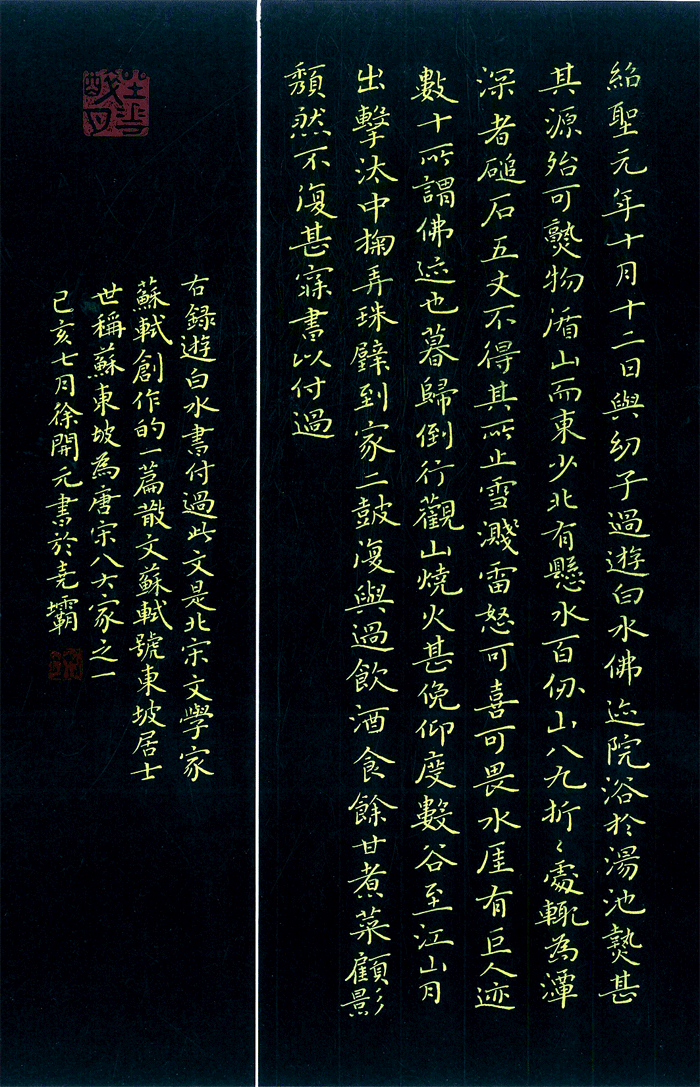 紹聖元年十月十二日與幼子過遊白水佛迹院浴於湯池熱甚
其源殆可熟物循山而東少北有懸水百仞山八九折〻處輒為潭
深者磓石五丈不得其所止雪濺雷怒可喜可畏水厓有巨人迹
數十所謂佛迹也暮歸倒行觀山燒火甚俛仰度數谷至江山月
出擊汰中掬弄珠璧到家二鼓復與過飲酒食餘甘煮菜顧影
頹然不復甚寐書以付過
右錄遊白水書付過此文是北宋文學家
蘇軾創作的一篇散文蘇軾號東坡居士
世稱蘇東坡為唐宋八大家之一
己亥七月徐開元書於堯壩